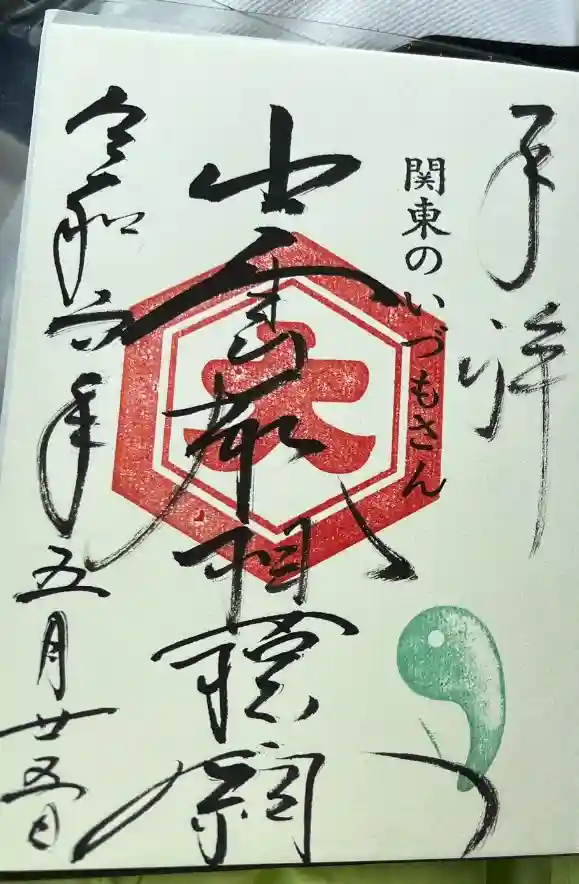 奉拝
関東のいづもさん
出雲大社相模分祠
大
令和六年五月廿五日